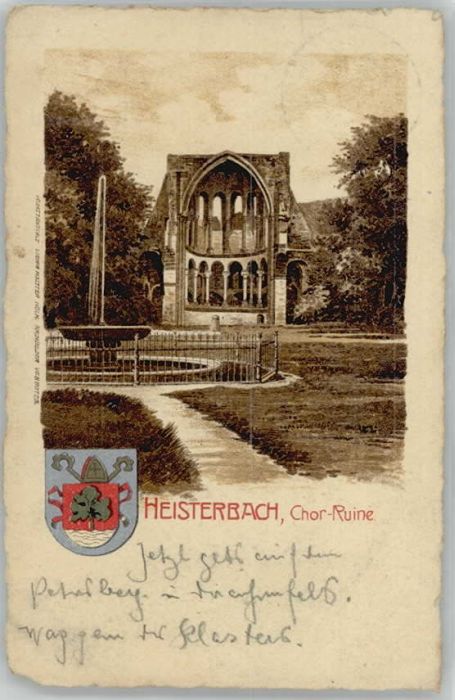 HEISTERBACH, Chor-Ruine
Jetzt gehts auf den
Petersberg u Drachenfels.
Wappen des Klosters.